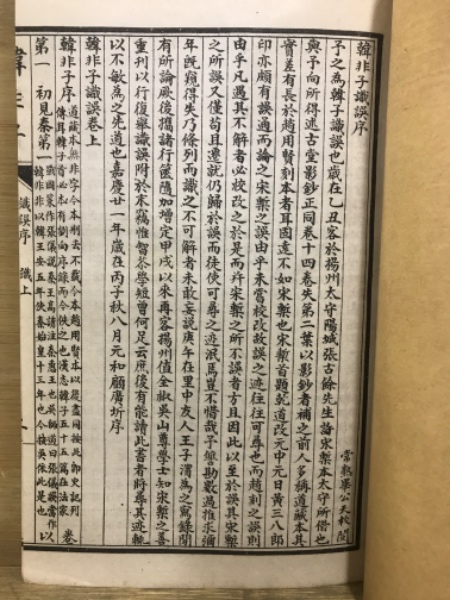 韓非子識誤序
常熟畢公天校閱
予之為韓子識誤也歲在乙丑客於揚州太守陽城張古餘先生諭宋槧本太守所借也
與予向所得述古堂影鈔正同卷十四失第二葉以影鈔者補之前人多稱道藏本其
實差有長於趙用賢刻本者耳固遠不如宋槧也宋槧首題乾道改元中元日黃三八郎
印亦頗有誤通而論之宋槧之誤由乎未嘗校改故誤之迹往往可尋也而趙刻之誤則
由乎凡遇其不解者必校改之於是而并宋槧之所不誤者方且因此以至於誤其宋槧
之所誤又僅苟且遷就仍歸於誤而徒使可尋之迹泯焉豈不惜哉予讐勘數過推求彌
年既窺得失乃條列而識之不可解者未敢妄說庚午在里中友人王子渭為之寫錄間
有所論厥後攜諸行篋隨加增定甲戌以來再客揚州值全椒吳山尊學士知宋槧之善
重刊以行復舉識誤附於末竊惟智茶學短曾何足云庶後有能讀此書者將尋其迹輒
以不敏為之先道也嘉慶廿一年歲在丙子秋八月元和顧廣圻序
韓非子識誤卷上
韓非子序
第一
初見秦第一
識誤序
識上